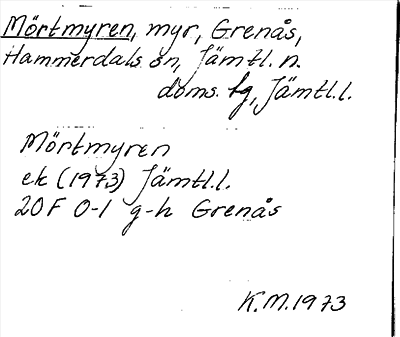 Mörtmyren, myr, Grenås,
Hammerdals sn, Jämtl. n.
doms. tg, Jämtl.l.
Mörtmyren
ek (1973) Jämtl.l.
20F 0-1 g-h Grenås
K.M.1973